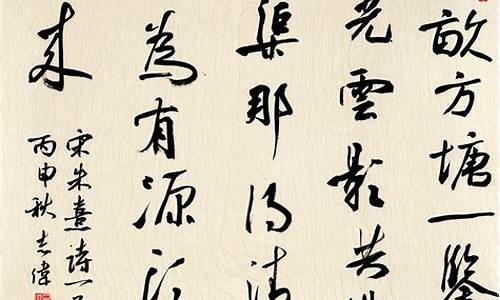 畝方塘一鑒
光雲影共
渠那得清
為有源
来
宋朱熹詩一
丙申秋志偉